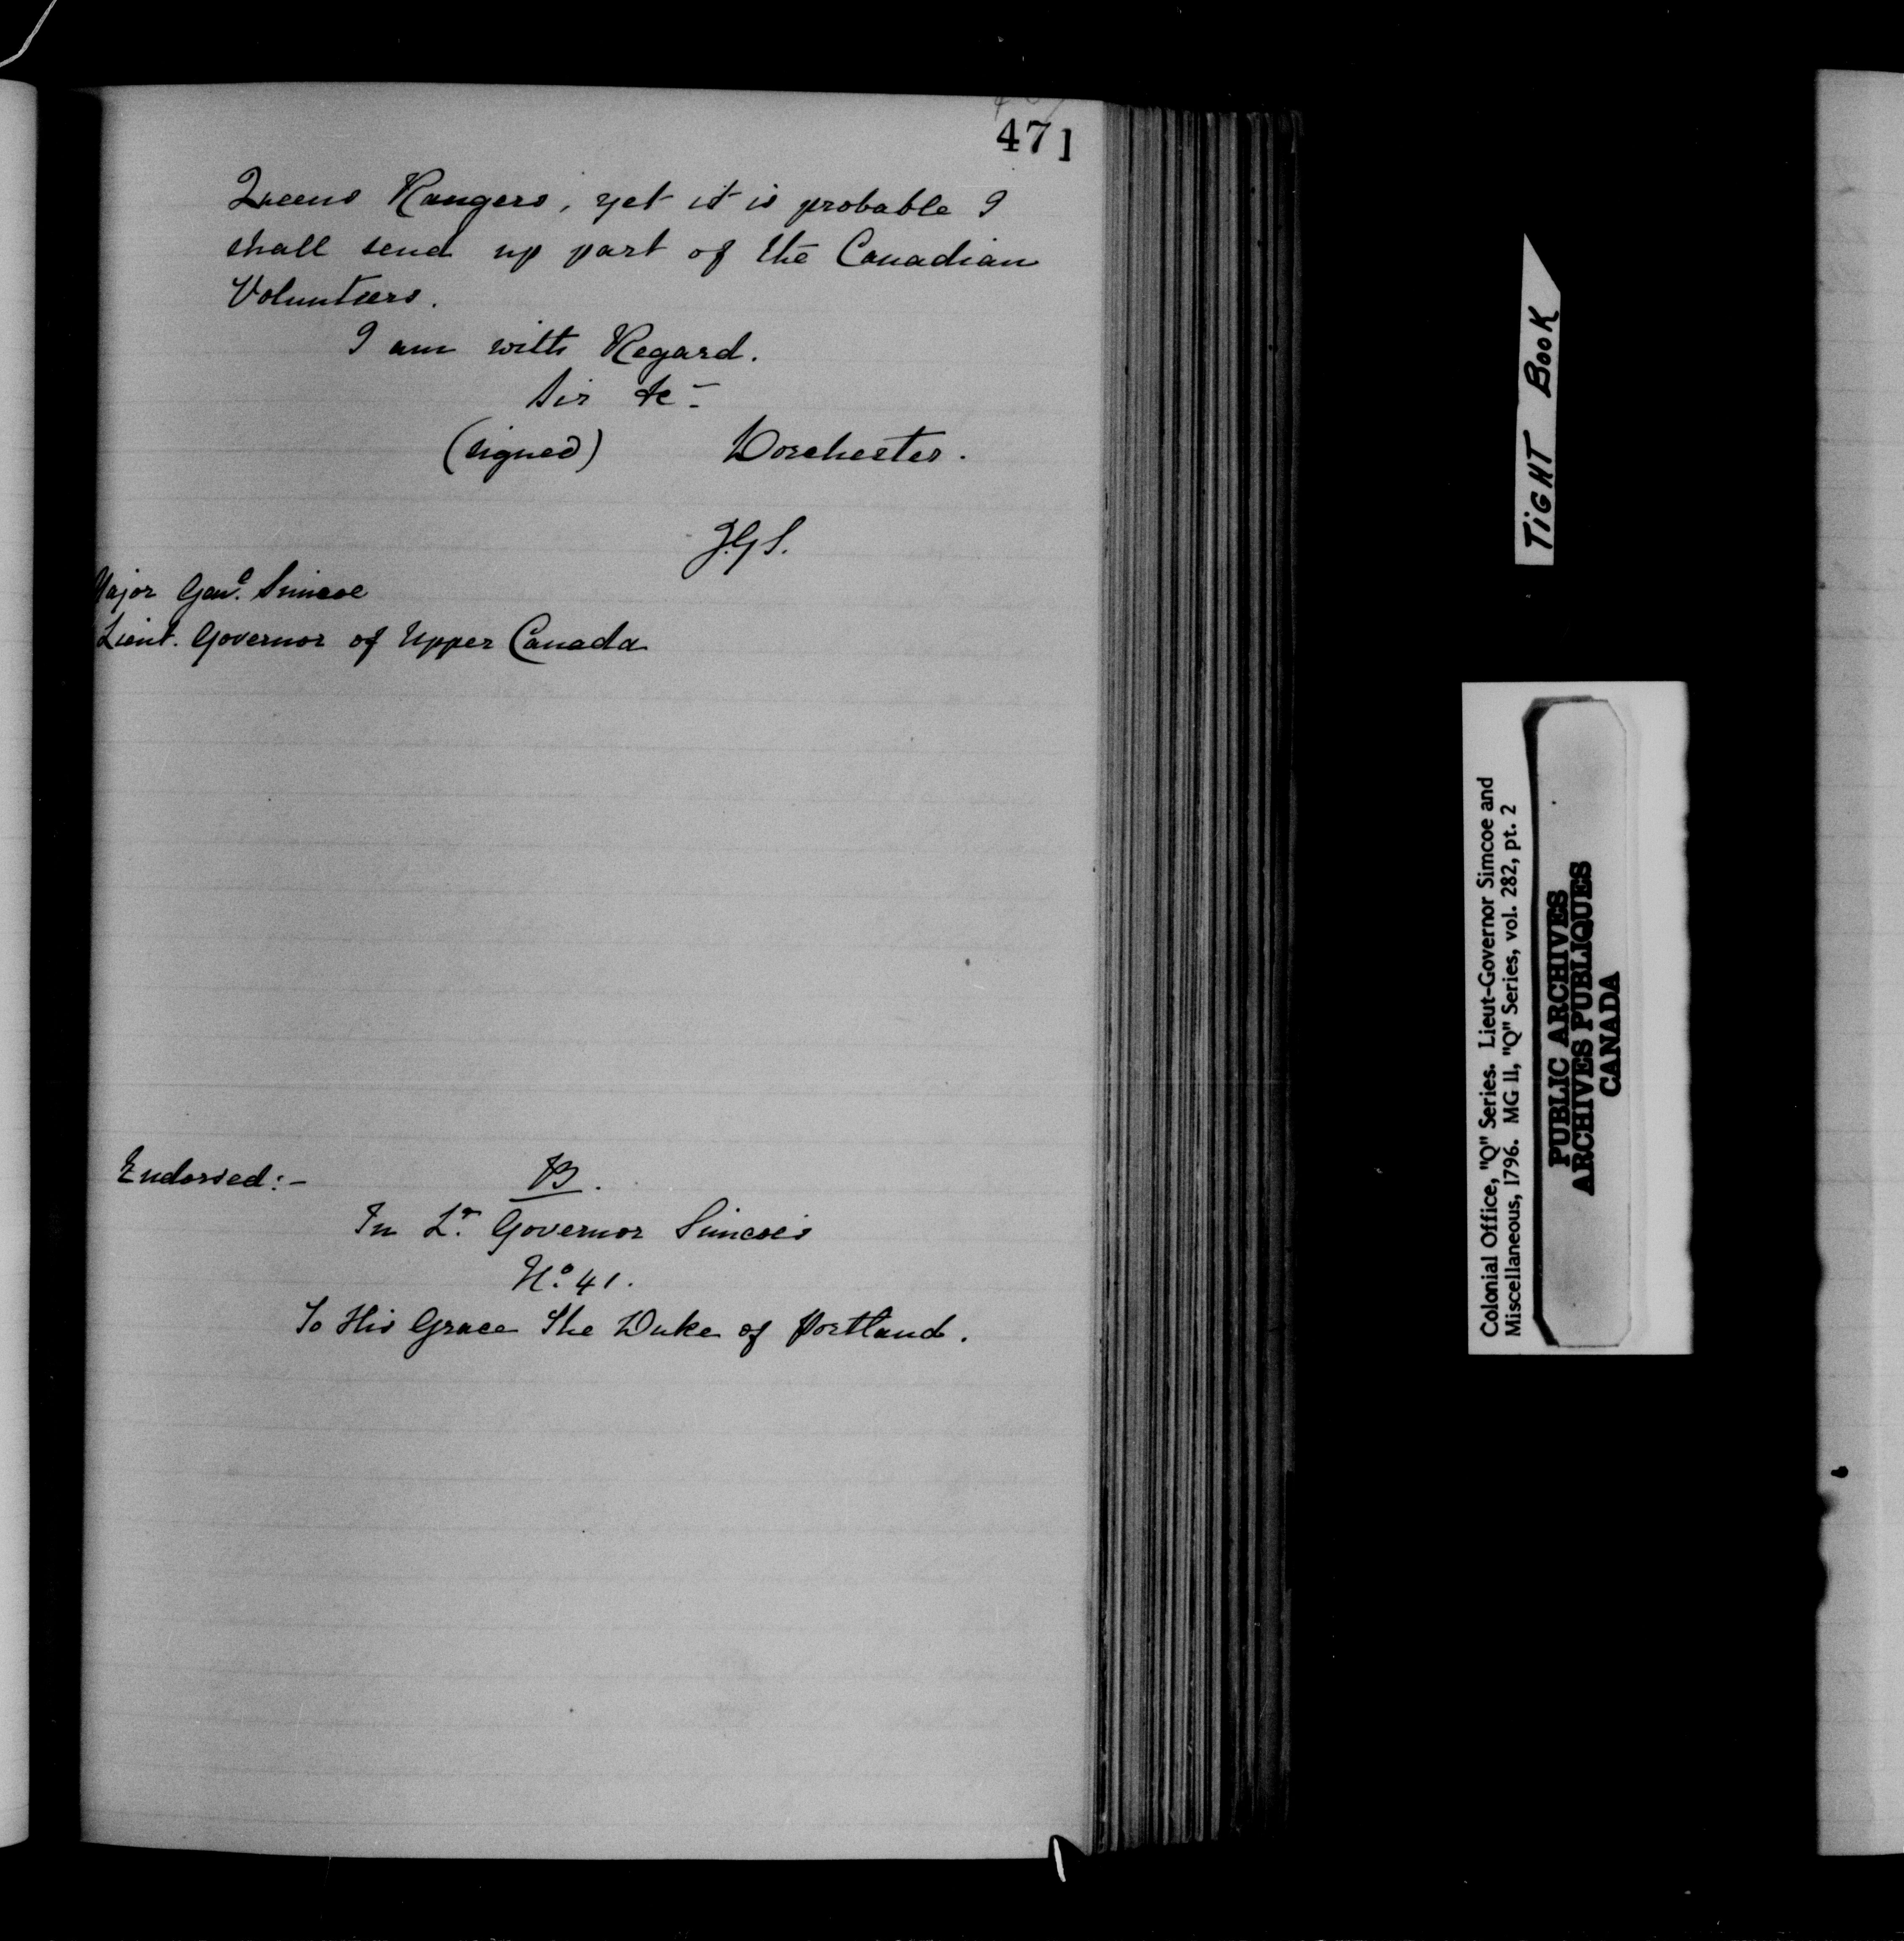 471
Queens Rangers, yet it is probable I
shall send up part of the Canadian
Volunteers.
I am with Regard.
Sir &c-
(signed) Dorchester.
J.G.S.
Major Genl. Simcoe
Lieut. Governor of Upper Canada
Endorsed:- B.
In Lt. Governor Simcoe's
No. 41.
To His Grace The Duke of Portland.
TIGHT BOOK
Colonial Office, "Q" Series. Lieut-Governor Simcoe and
Miscellaneous, 1796. MG 11, "Q" Series, vol. 282, pt. 2
PUBLIC ARCHIVES
ARCHIVES PUBLIQUES
CANADA